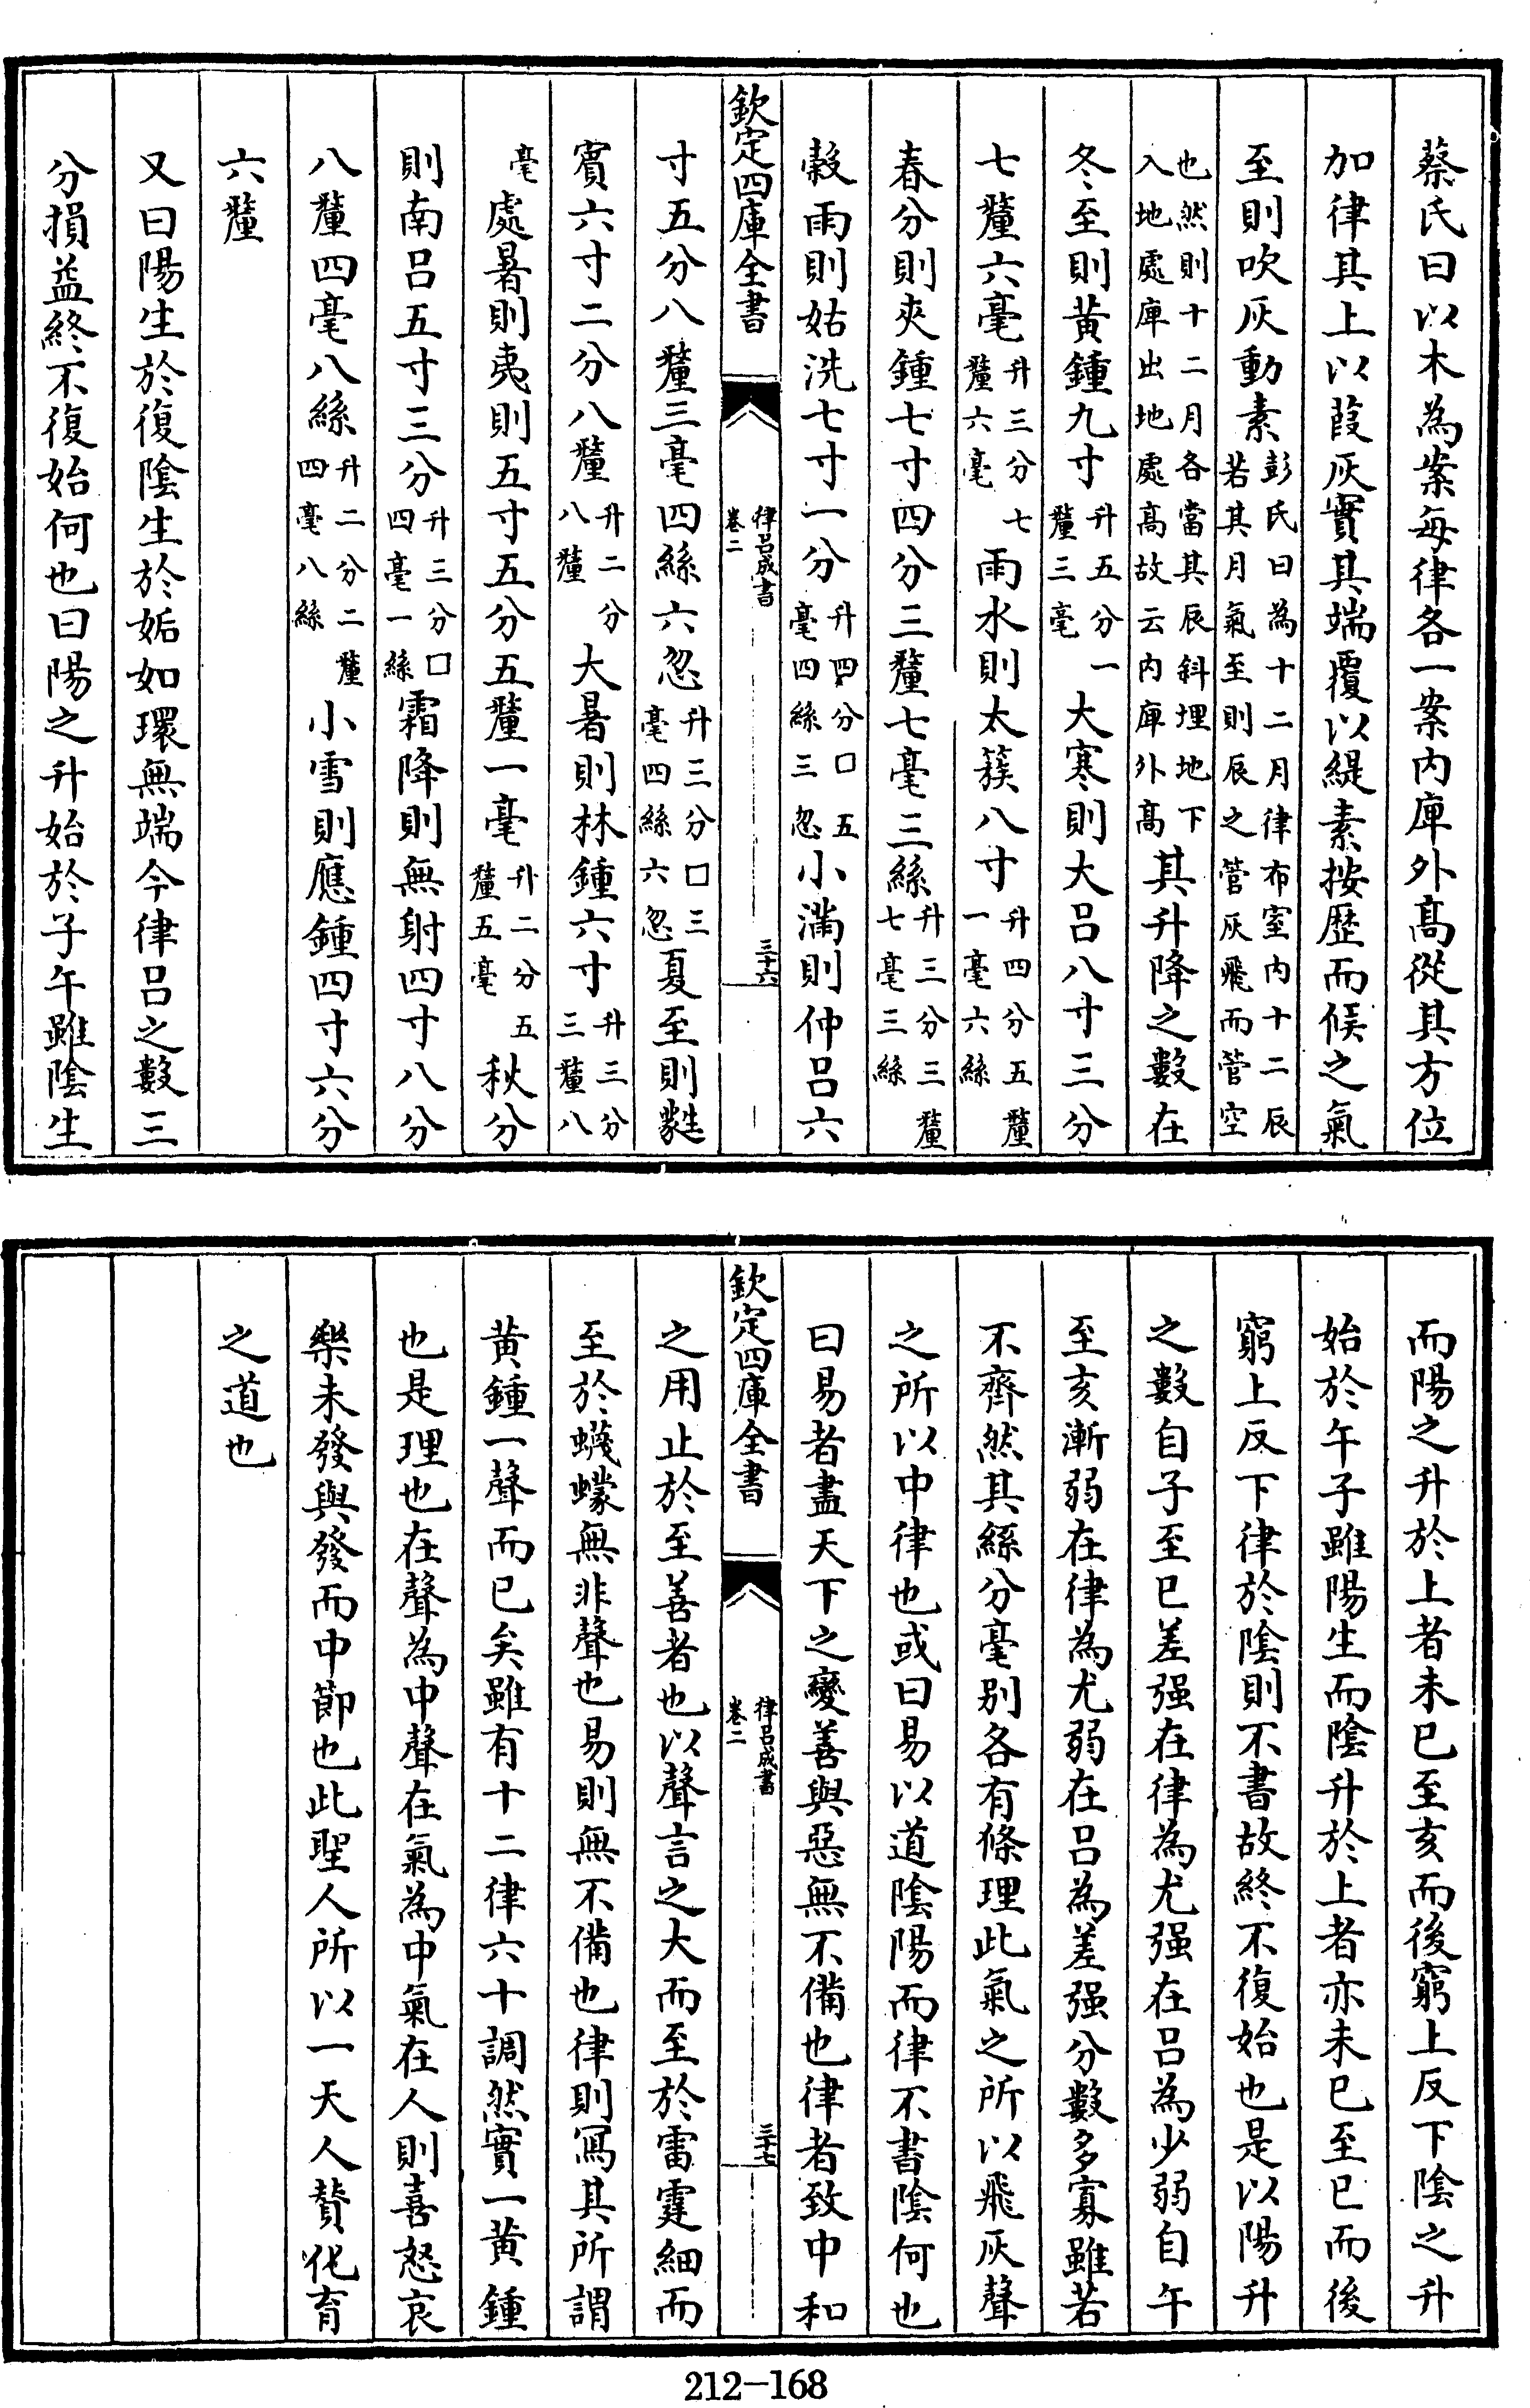 蔡氏曰以木為案每律各一案内庳外髙從其方位
加律其上以葭灰實其端覆以緹素按歴而候之氣
至則吹灰動素彭氏曰為十二月律布室内十二辰若其月氣至則辰之管灰飛而管空
也然則十二月各當其辰斜埋地下入地處庳出地處髙故云内庳外髙其升降之數在
冬至則黄鍾九寸升五分一釐三毫大寒則大吕八寸三分
七釐六毫升三分七釐六毫雨水則太簇八寸升四分五釐一毫六絲
春分則夾鍾七寸四分三釐七毫三絲升三分三釐七毫三絲
榖雨則姑洗七寸一分升四分口五毫四絲三忽小滿則仲吕六
欽定四庫全書
律吕成書
卷二
三十六
寸五分八釐三毫四絲六忽升三分口三毫四絲六忽夏至則蕤
賔六寸二分八釐升二分八釐大暑則林鍾六寸升三分三釐八
毫處暑則夷則五寸五分五釐一毫升二分五釐五毫秋分
則南吕五寸三分升三分口四毫一絲霜降則無射四寸八分
八釐四毫八絲升二分二釐四毫八絲小雪則應鍾四寸六分
六釐
又曰陽生於復隂生於姤如環無端今律吕之數三
分損益終不復始何也曰陽之升始於子午雖隂生
而陽之升於上者未已至亥而後窮上反下隂之升
始於午子雖陽生而隂升於上者亦未已至巳而後
窮上反下律於隂則不書故終不復始也是以陽升
之數自子至巳差强在律為尤强在吕為少弱自午
至亥漸弱在律為尤弱在吕為差强分數多寡雖若
不齊然其絲分毫别各有條理此氣之所以飛灰聲
之所以中律也或曰易以道隂陽而律不書隂何也
曰易者盡天下之變善與惡無不備也律者致中和
欽定四庫全書
律吕成書
卷二
三十七
之用止於至善者也以聲言之大而至於雷霆細而
至於蠛蠓無非聲也易則無不備也律則寫其所謂
黄鍾一聲而已矣雖有十二律六十調然實一黄鍾
也是理也在聲為中聲在氣為中氣在人則喜怒哀
樂未發與發而中節也此聖人所以一天人賛化育
之道也
212-168